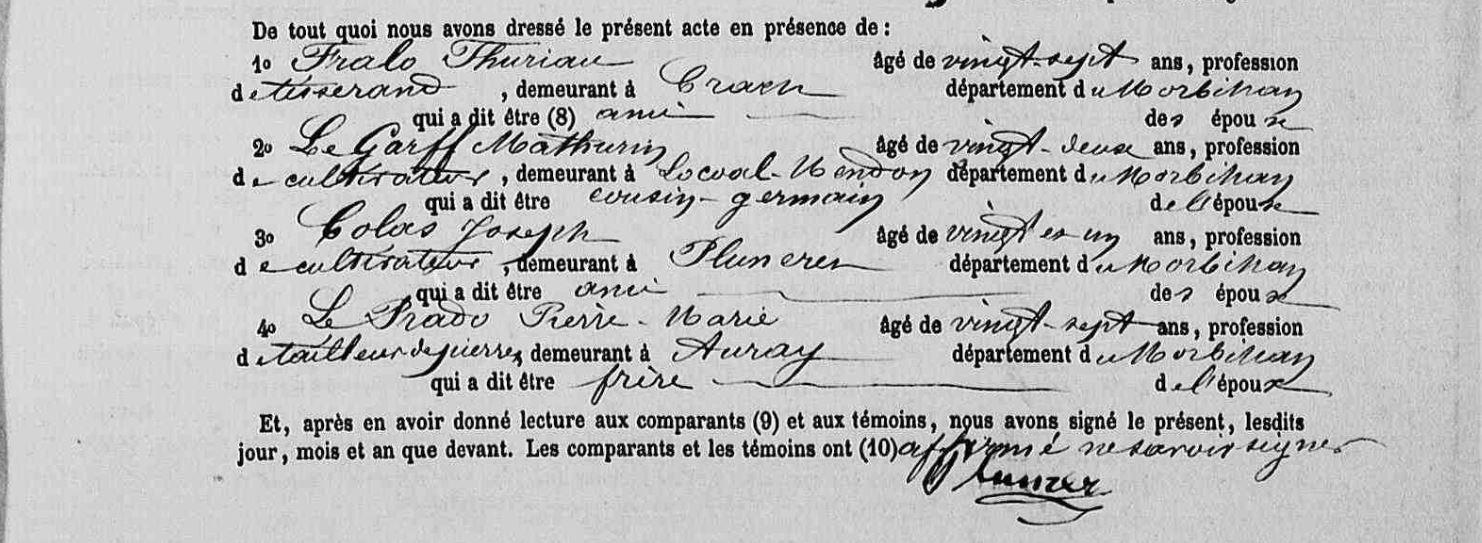 De tout quoi nous avons dressé le présent acte en présence de :
1o Fralo Thuriau âgé de vingt-sept ans, profession
de tisserand, demeurant à Crach département du Morbihan
qui a dit être (8) ami des époux
2o Le Garff Mathurin âgé de vingt-deux ans, profession
de cultivateur, demeurant à Locoal-Mendon département du Morbihan
qui a dit être cousin-germain de l'époux
3o Colas Joseph âgé de vingt et un ans, profession
de cultivateur, demeurant à Pluneret département du Morbihan
qui a dit être ami des époux
4o Le Prado Pierre-Marie âgé de vingt-sept ans, profession
de tailleur de pierres, demeurant à Auray département du Morbihan
qui a dit être frère de l'époux
Et, après en avoir donné lecture aux comparants (9) et aux témoins, nous avons signé le présent, lesdits
jour, mois et an que devant. Les comparants et les témoins ont (10) affirmé ne savoir signer